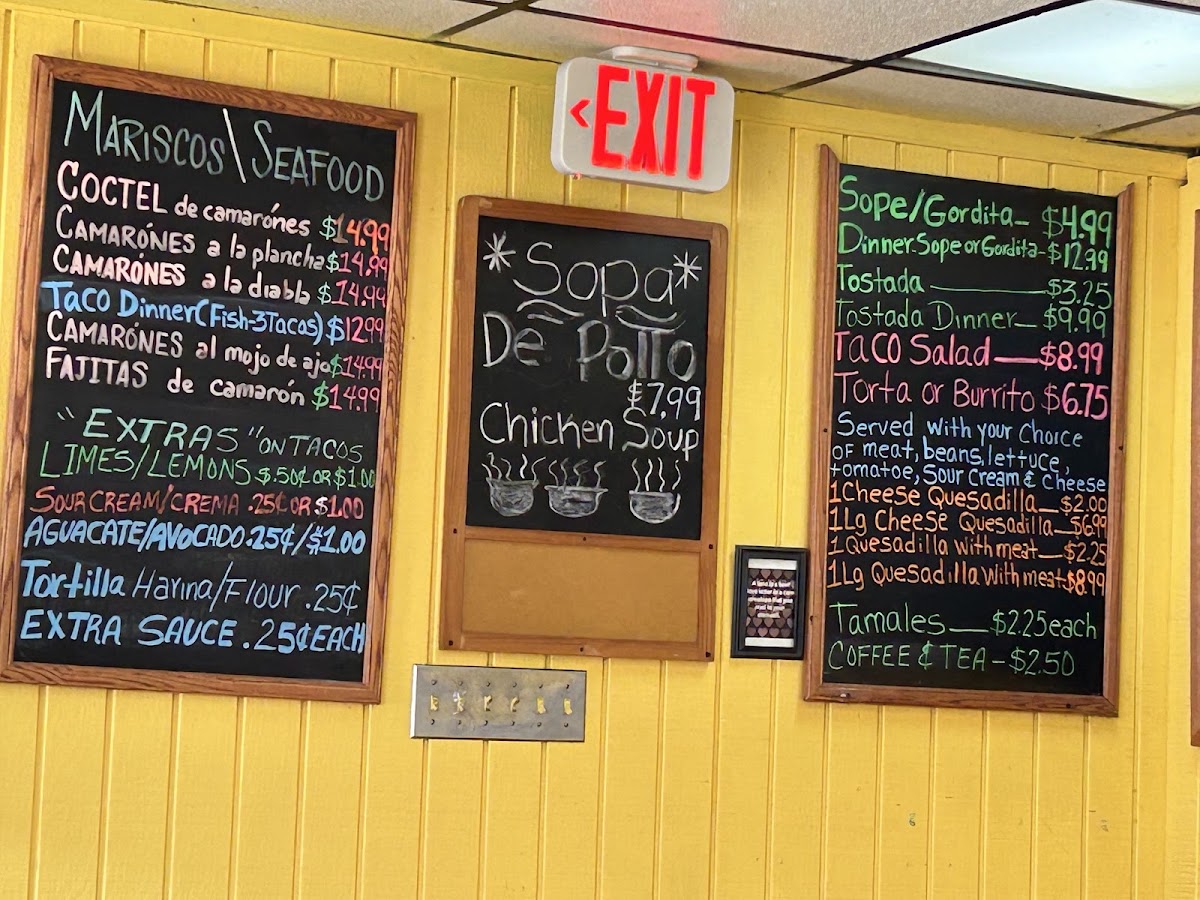 MARISCOS\SEAFOOD
COCTEL de camarónes $14.99
CAMARÓNES a la plancha $14.99
CAMARÓNES a la diabla $14.99
TACO DINNER (FISH-3TACOS) $12.99
CAMARÓNES al mojo de ajo $14.99
FAJITAS de camarón $14.99
"EXTRAS" ON TACOS
LIMES/LEMONS $.50¢ OR $1.00
SOUR CREAM/CREMA .25¢ OR $1.00
AGUACATE/AVOCADO .25¢/$1.00
Tortilla Harina/Flour .25¢
EXTRA SAUCE .25¢ EACH
<EXIT
*Sopa*
De Pollo
$7.99
Chicken Soup
Sope/Gordita- $4.99
Dinner-Sope or Gordita-$12.99
Tostada — $3.25
Tostada Dinner— $9.99
Taco Salad — $8.99
Torta or Burrito $6.75
Served with your choice
of meat, beans, lettuce,
tomatoe, Sour Cream & Cheese
1 Cheese Quesadilla — $2.00
1 Lg Cheese Quesadilla — $6.99
1 Quesadilla with meat — $2.25
1 Lg Quesadilla with meat-$8.99
Tamales — $2.25 each
COFFEE & TEA - $2.50